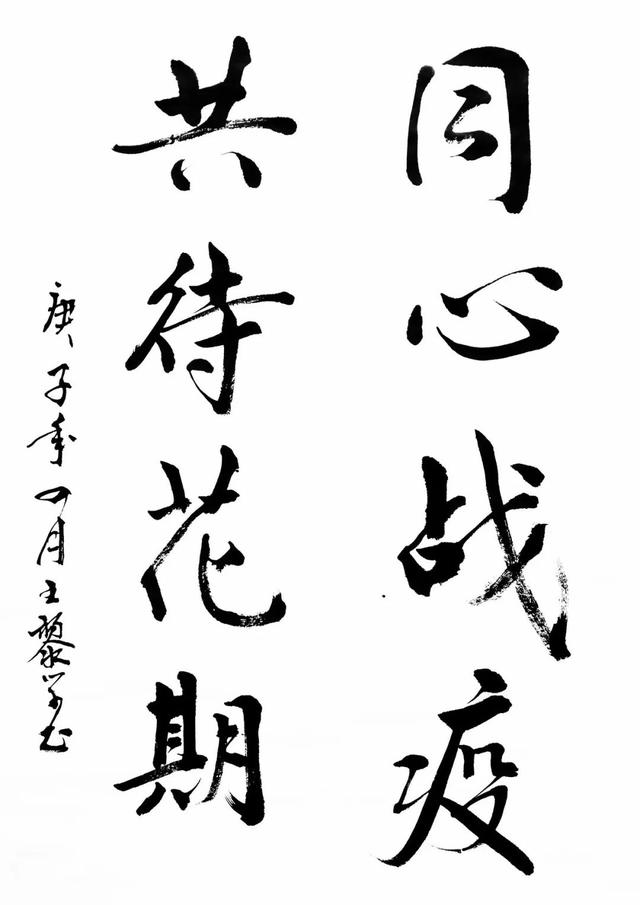 同心战疫
共待花期
庚子年四月王黎学书